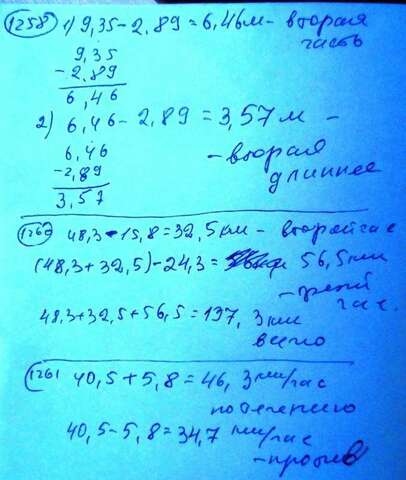 1258 1) 9,35 - 2,89 = 6,46 м - вторая
часть
9,35
- 2,89
6,46
2) 6,46 - 2,89 = 3,57 м -
6,46
- вторая
- 2,89
длиннее
3,57
48,3 - 15,8 = 32,5 км - второй час
(48,3 + 32,5) - 24,3 = 56,5 км
- третий
час.
48,3 + 32,5 + 56,5 = 137,3 км
всего
1261 40,5 + 5,8 = 46,3 км/час
по течению
40,5 - 5,8 = 34,7 км/час
- против